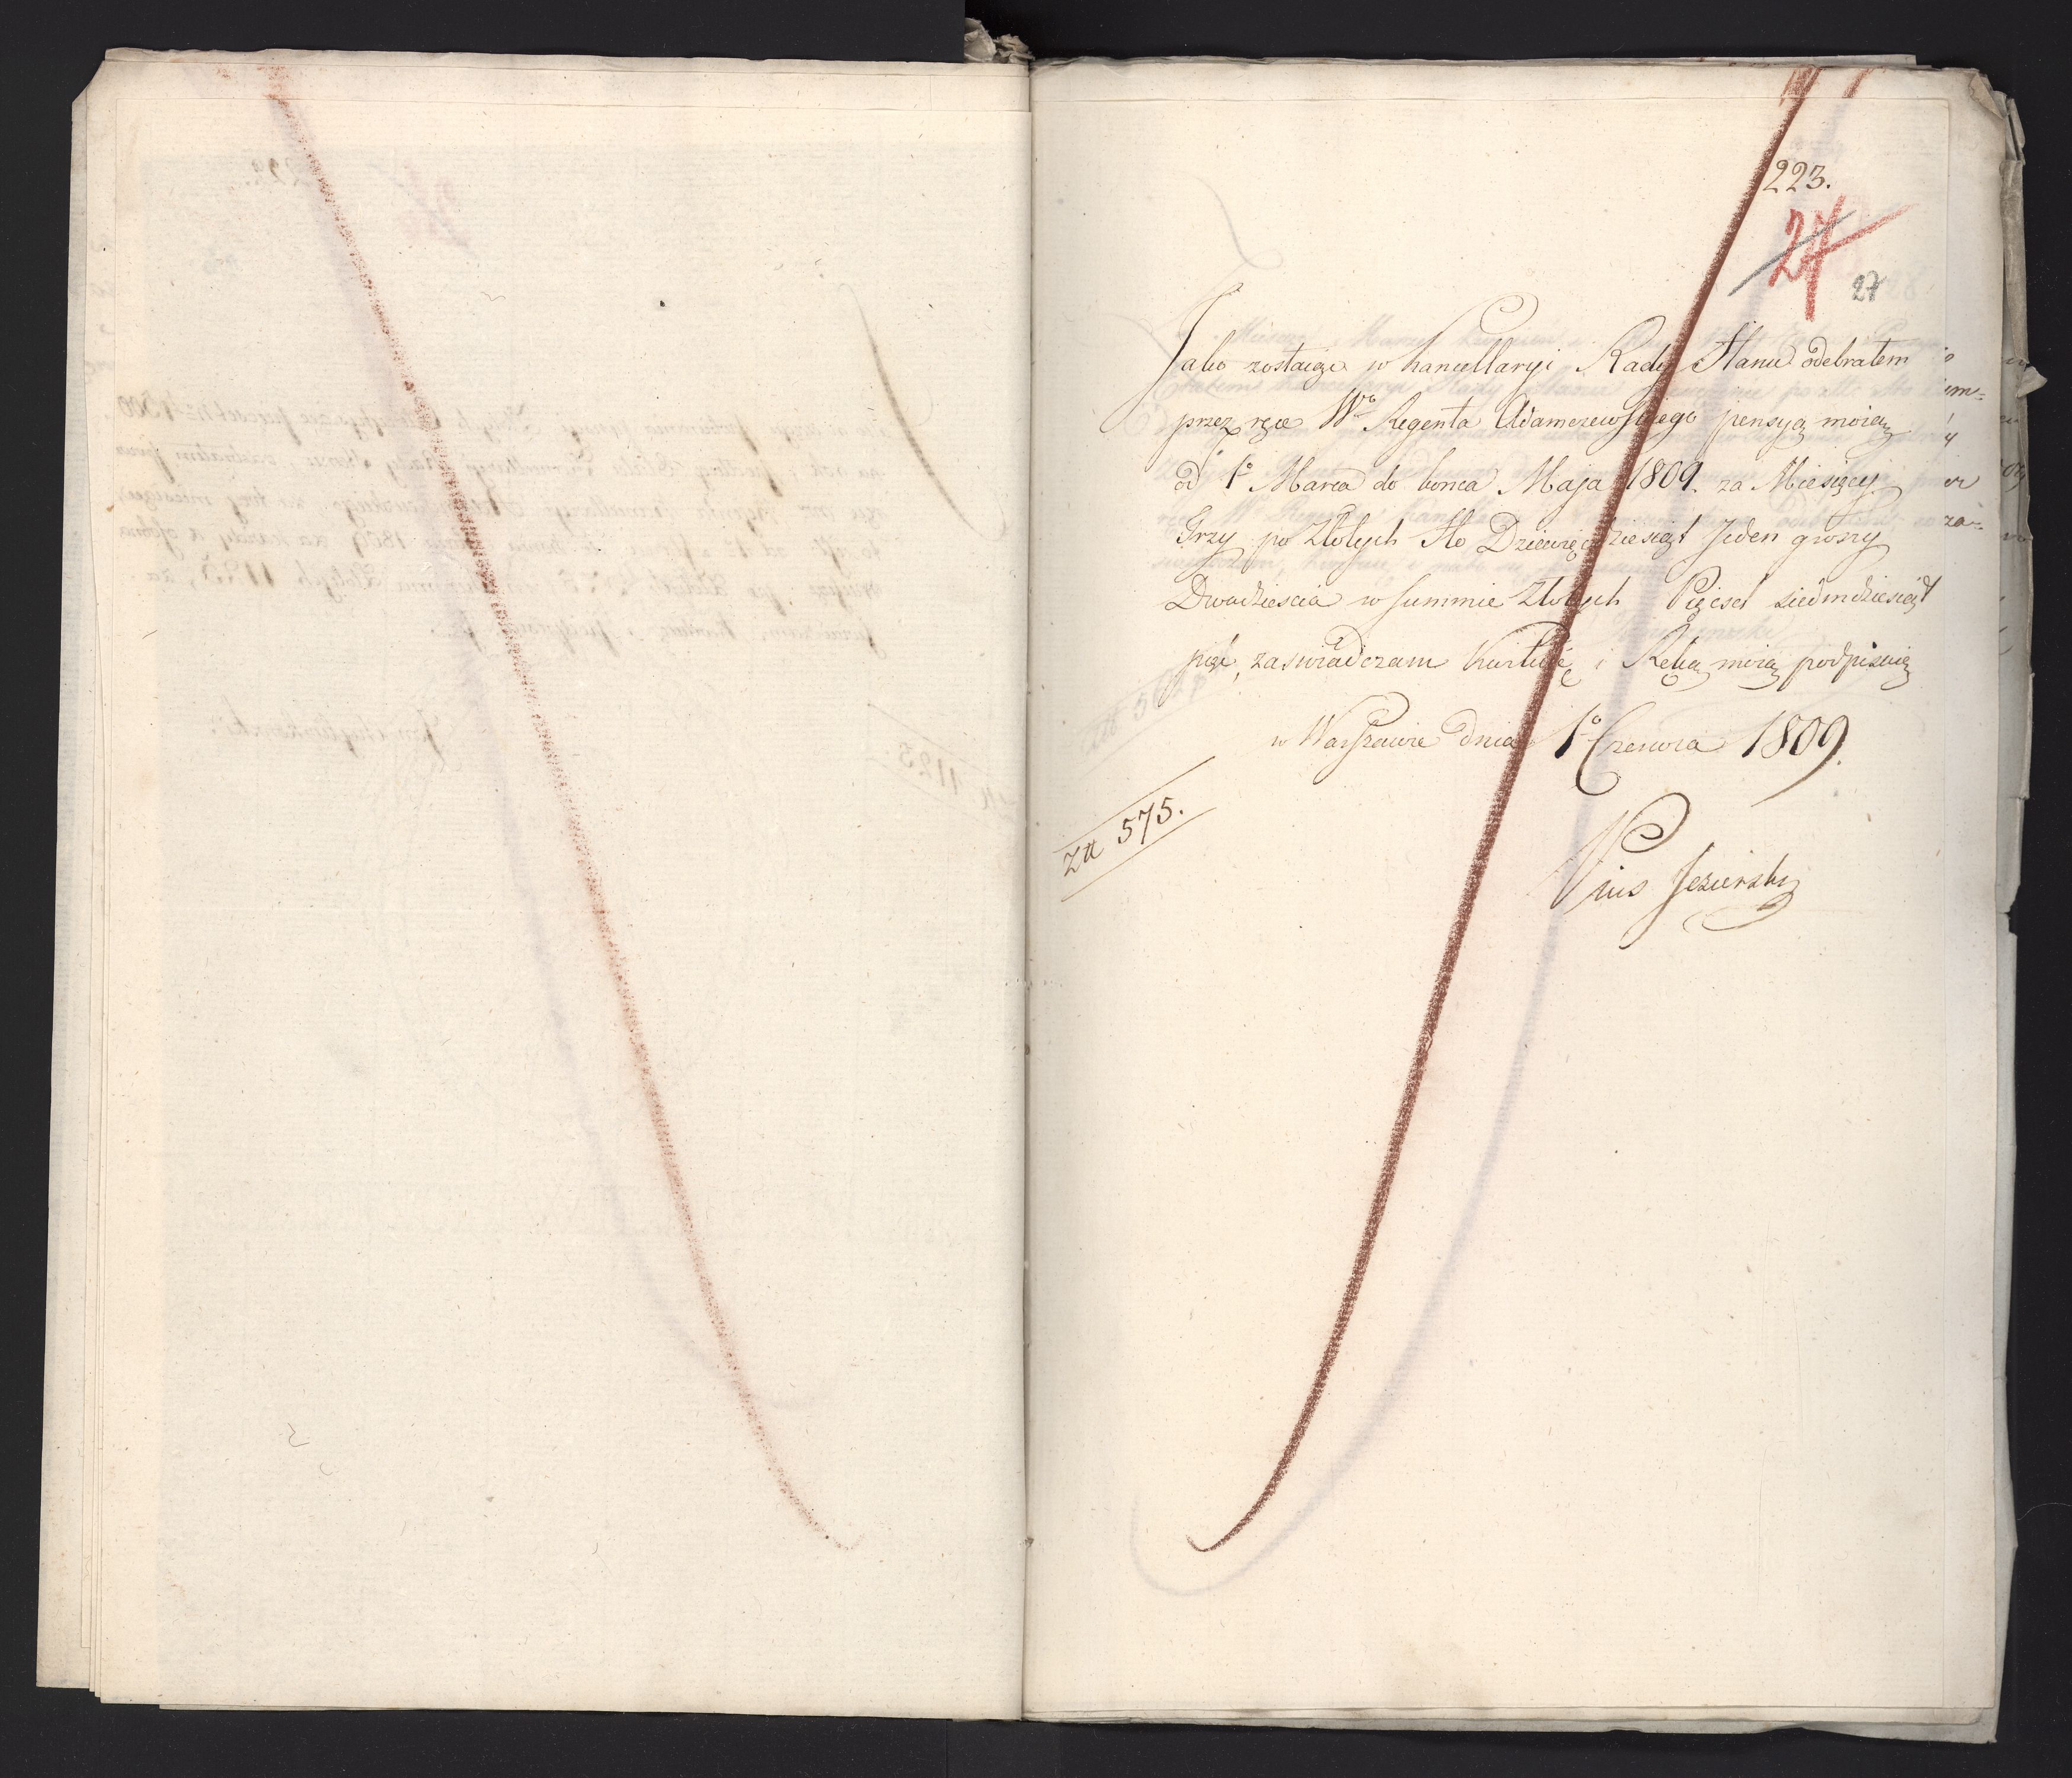 223.
27
27
Jako zostaiąc w kancellaryi Rady Stanu odebrałem
przez ręce Wo Regenta Adamczewskiego pensyą moią
od 1o Marca do końca Maja 1809. za Miesięcy
Trzy po Złotych Sto Dziewięćdziesiąt Jeden groszy
Dwadzieścia w summie Złotych Pięćset siedmdziesiąt
pięć, zaświadczam kwituię i Ręką moią podpisuię
w Warszawie dnia 1o Czerwca 1809.
Złł 575.
Pius Jezierski